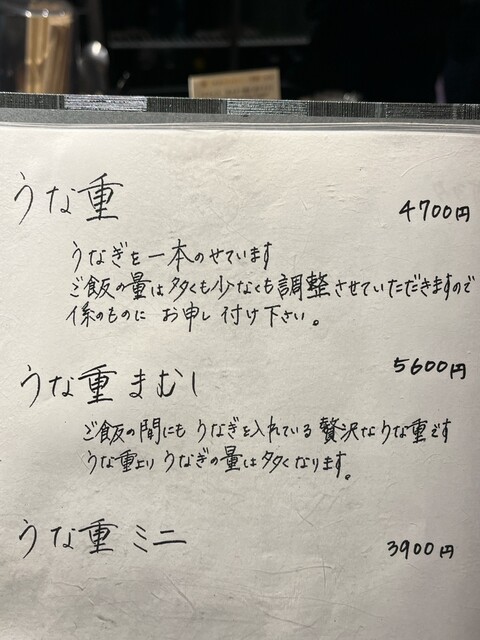 うな重 4700円
うなぎを一本のせています
ご飯の量は多くも少なくも調整させていただきますので
係のものに お申し付け下さい。
うな重 まむし 5600円
ご飯の間にも うなぎを入れている 贅沢なうな重です
うな重より うなぎの量は多くなります。
うな重 ミニ 3900円